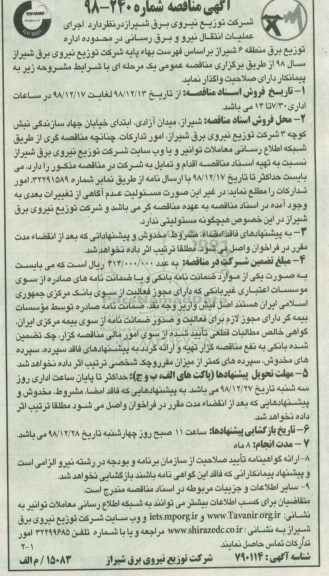 آگهی مناقصه شماره ۲۴۰-۹۸
شرکت توزیع نیروی برق شیراز در نظر دارد اجرای
عملیات انتقال نیرو و برق رسانی در محدوده اداره
توزیع برق منطقه ۶ شیراز براساس فهرست بهاء پایه شرکت توزیع نیروی برق شیراز
سال ۹۸ از طریق برگزاری مناقصه عمومی یک مرحله ای با شرایط مشروحه زیر به
پیمانکار دارای صلاحیت واگذار نماید.
۱- تاریخ فروش اسناد مناقصه: از تاریخ ۹۸/۱۲/۱۳ لغایت ۹۸/۱۲/۱۷ در ساعات
اداری ۷/۳۰ تا ۱۴ می باشد.
۲- محل فروش اسناد مناقصه: شیراز، میدان آزادی، ابتدای خیابان جهاد سازندگی نبش
کوچه ۳ شرکت توزیع نیروی برق شیراز، امور تدارکات. چنانچه مناقصه گری از طریق
شبکه اطلاع رسانی معاملات توانیر و یا وب سایت شرکت توزیع نیروی برق شیراز
نسبت به تهیه اسناد مناقصه اقدام و تمایل به شرکت در مناقصه مذکور را دارد، می
بایست حداکثر تا تاریخ ۹۸/۱۲/۱۷ با ارسال نامه از طریق نمابر شماره ۳۲۲۹۱۵۸۹، امور
تدارکات را مطلع نماید؛ در غیر این صورت مسئولیت عدم آگاهی از تغییرات بعدی به
وجود آمده در اسناد مناقصه به عهده مناقصه گر می باشد و شرکت توزیع نیروی برق
شیراز در این خصوص هیچگونه مسئولیتی ندارد.
۳- به پیشنهادهای فاقد امضاء، مشروط، مخدوش و پیشنهاداتی که بعد از انقضاء مدت
مقرر در فراخوان واصل می شود، مطلقا ترتیب اثر داده نخواهد شد.
۴- مبلغ تضمین شرکت در مناقصه: به عدد ۳۱۴/۰۰۰/۰۰۰ ریال است که می بایست
به صورت یکی از موارد ضمانت نامه بانکی و یا ضمانت نامه های صادره از سوی
موسسات اعتباری غیربانکی که دارای مجوز فعالیت از سوی بانک مرکزی جمهوری
اسلامی ایران هستند، اصل فیش واریز وجه نقد، ضمانت نامه صادره توسط مؤسسات
بیمه گر دارای مجوز لازم برای فعالیت و صدور ضمانت نامه از سوی بیمه مرکزی ایران،
گواهی خالص مطالبات قطعی تأیید شده از سوی امور مالی مناقصه گزار، چک تضمین
شده بانکی به نفع مناقصه گزار تهیه و ارائه گردد به پیشنهادهای فاقد سپرده، سپرده
های مخدوش، سپرده های کمتر از میزان مقرر و چک شخصی ترتیب اثر داده نخواهد شد.
۵- مهلت تحویل پیشنهادها (پاکت های الف، ب و ج): حداکثر تا پایان ساعت اداری روز
سه شنبه تاریخ ۹۸/۱۲/۲۷ می باشد. به پیشنهادهایی که فاقد امضا، مشروط، مخدوش و
پیشنهادهایی که بعد از انقضاء مدت مقرر در فراخوان واصل می شود مطلقا ترتیب اثر
داده نخواهد شد.
۶- تاریخ بازگشایی پیشنهادها: ساعت ۱۱ صبح روز چهارشنبه تاریخ ۹۸/۱۲/۲۸ می باشد.
۷- مدت انجام: ۸ ماه
۸- ارائه گواهینامه تأیید صلاحیت از سازمان برنامه و بودجه در رشته نیرو الزامی است
و پیشنهاد پیمانکارانی که فاقد این گواهی نامه باشند بازگشایی نخواهد شد.
۹- سایر اطلاعات و جزییات مربوطه در اسناد مناقصه مندرج است.
متقاضیان برای کسب اطلاعات بیشتر می توانند به شبکه اطلاع رسانی معاملات توانیر به
نشانی: www.Tavanir.org.ir و iets.mporg.ir و وب سایت شرکت توزیع نیروی برق
شیراز به نشانی: www.shirazedc.co.ir مراجعه و یا با شماره تلفن ۳۲۲۹۹۶۸۵ امور
تدارکات تماس حاصل نمایند. ۲-۱
شناسه آگهی: ۷۹۰۱۱۴ شرکت توزیع نیروی برق شیراز ۱۵۰۸۳ / م الف